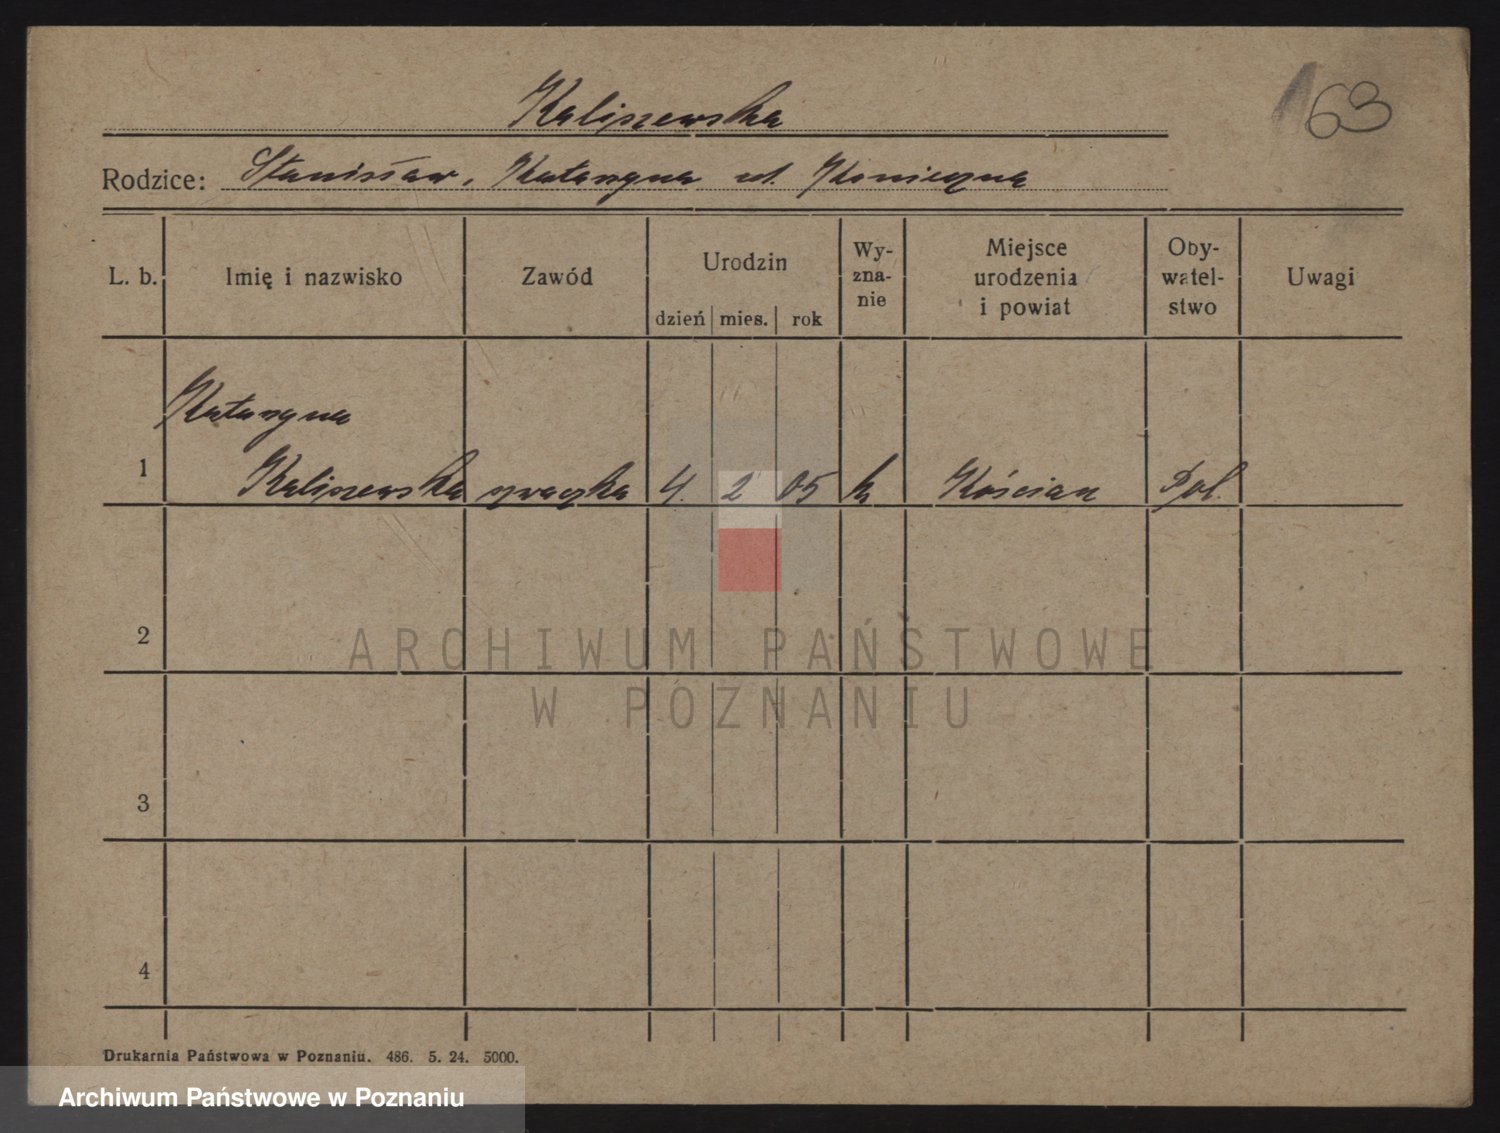 Kaliszewska
163
Rodzice: Stanisław, Katarzyna ud. Konieczna
L. b. Imię i nazwisko Zawód Urodzin Wy-zna-nie Miejsce urodzenia i powiat Oby-watel-stwo Uwagi
dzień mies. rok
Katarzyna
1 Kaliszewska szwaczka 4. 2 05 k Kościan Pol.
2
ARCHIWUM PAŃSTWOWE
W POZNANIU
3
4
Drukarnia Państwowa w Poznaniu. 486. 5. 24. 5000.
Archiwum Państwowe w Poznaniu